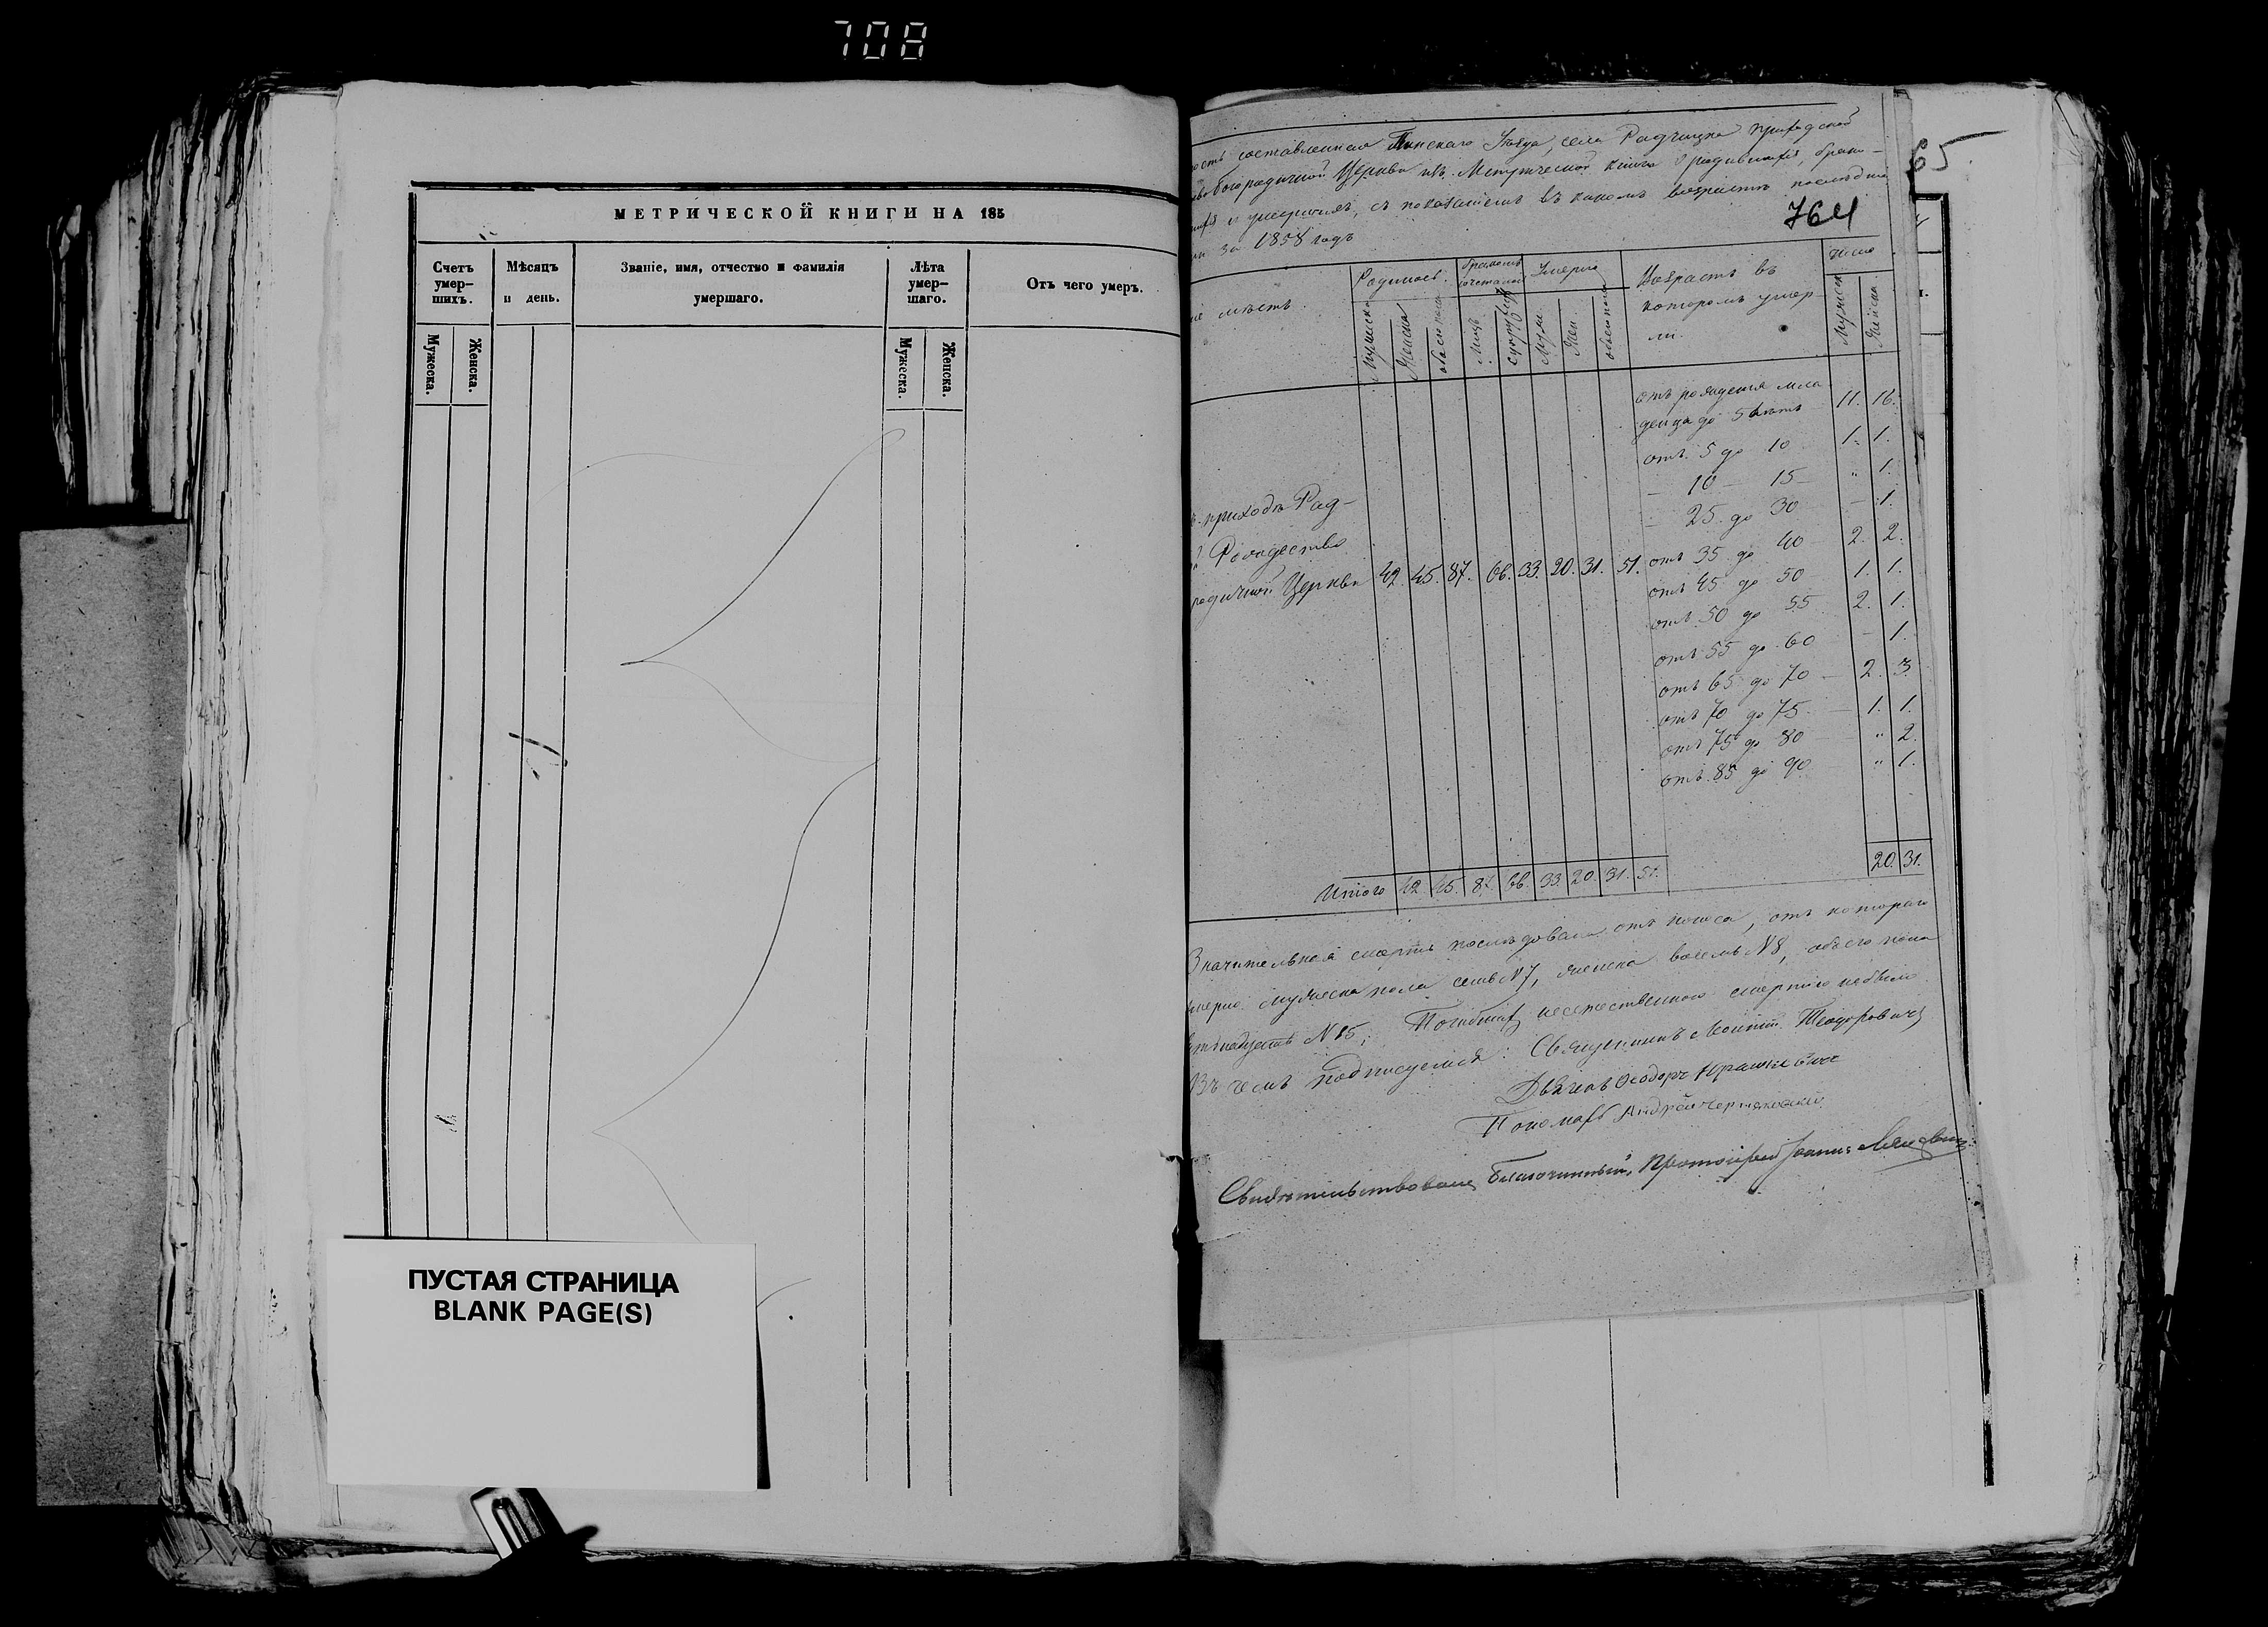 708
МЕТРИЧЕСКОЙ КНИГИ НА 185
Счетъ умер- шихъ.
Мѣсяцъ и день.
Званіе, имя, отчество и фамилія умершаго.
Лѣта умер- шаго.
Отъ чего умеръ.
Мужеска.
Женска.
Мужеска.
Женска.
ПУСТАЯ СТРАНИЦА
BLANK PAGE(S)
65
составленная Пинскаго Уѣзда, села Радчицка приходской
Богородичной Церкви изъ Метрической книги о родившихся, брако-
и умершихъ, съ показаніемъ въ какомъ возрастѣ
за 1858 годъ
764
мѣстъ.
Родилось.
бракомъ сочеталось
Умерло
Возрастъ въ которомъ умер- ли.
Число
Мужеска
Женска
обоего пола
Лицъ
Супруж
Муж.
Жен.
обоего пола
Мужеска
Женска
отъ рожденія мла
денца до 5 лѣтъ 11. 16.
отъ 5 до 10 1. 1.
— 10 — 15 — " 1.
— 25 до 30 — 1.
отъ 35 до 40 2. 2.
отъ 45 до 50 1. 1.
отъ 50 до 55 2. 1.
отъ 55 до 60 — 1.
отъ 65 до 70 — 2. 3.
отъ 70 до 75 — 1. 1.
отъ 75 до 80 " 2.
отъ 85 до 90 " 1.
приходѣ Рад-
Рождество
родичной Церкви 42. 45. 87. 66. 33. 20. 31. 51.
20. 31.
Итого 42. 45. 87. 66. 33. 20. 31. 51.
Значительная смерть послѣдовала отъ поноса, отъ котораго
умерло мужеска пола семь N 7, женска восемь N 8, обоего пола
пятнадцать N 15. Погибших неестественною смертію небыло
Въ чемъ подписуемся: Священникъ Теодоровичъ
Дьячокъ Ѳеодоръ
Пономарь Андрей Черняковскій
Свидѣтельствовалъ Благочинный, Протоіерей Іоаннъ